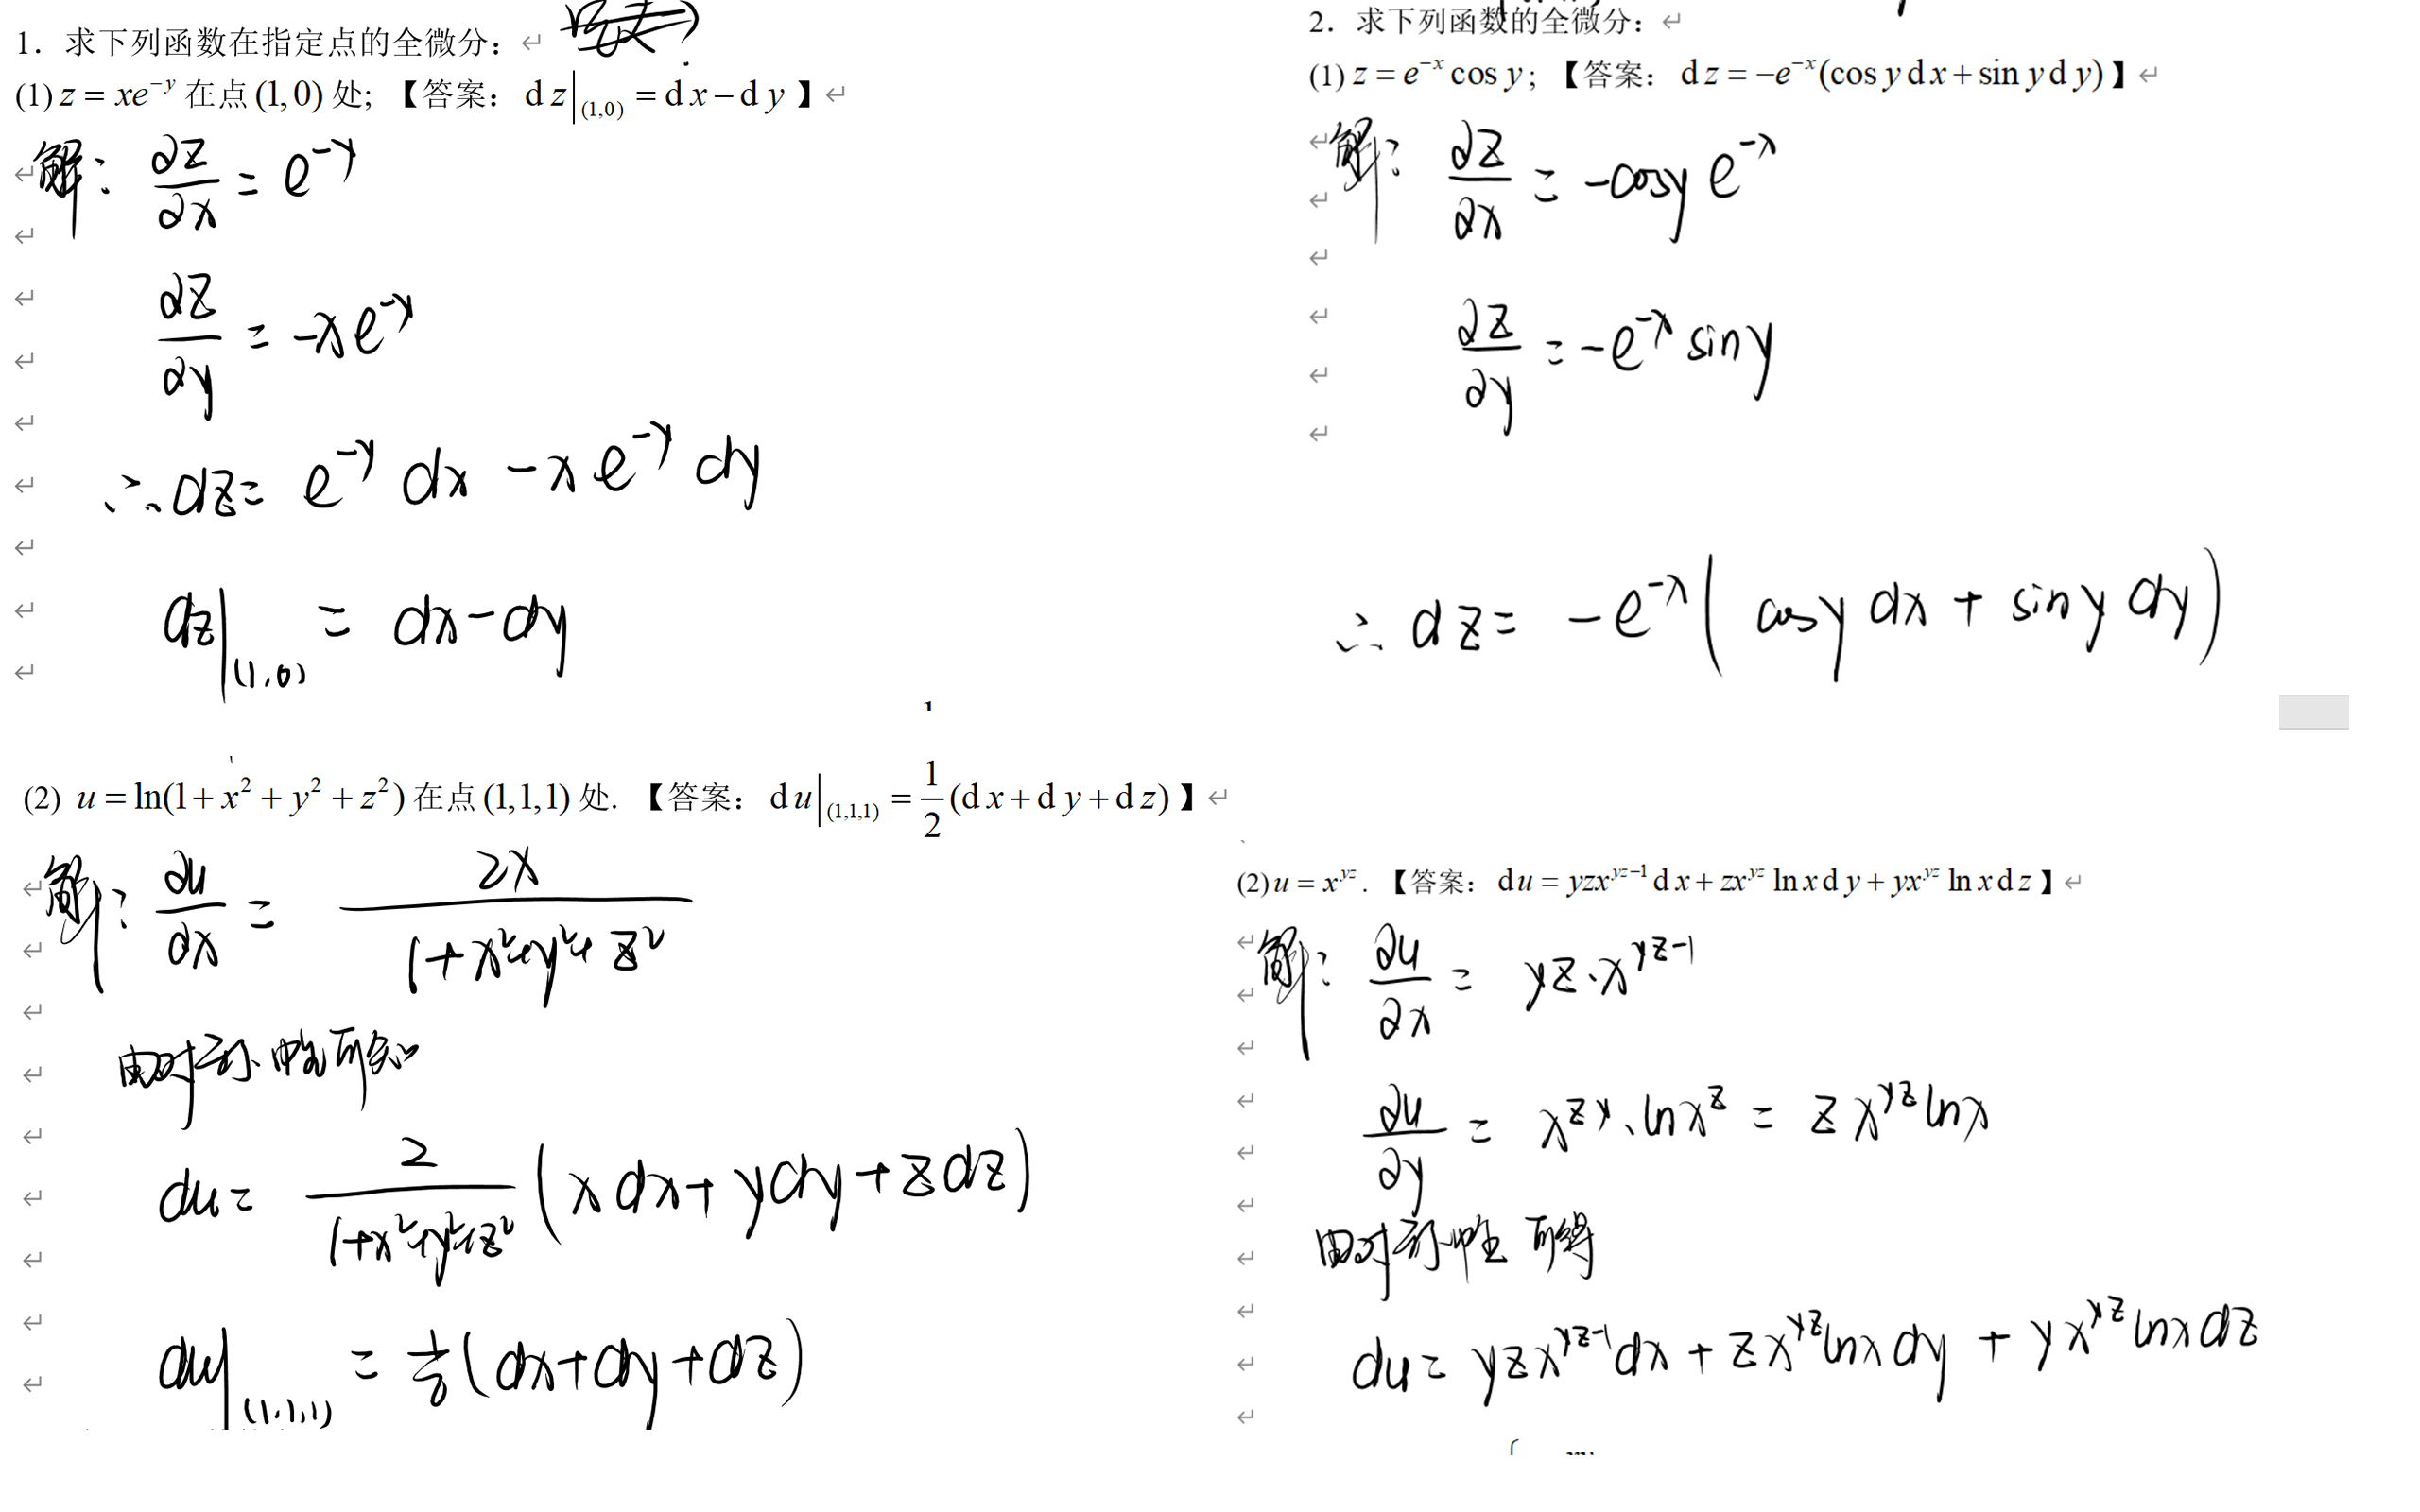 1. 求下列函数在指定点的全微分：
(1) z = xe^{-y} 在点 (1,0) 处; 【答案： dz|_{(1,0)} = dx − dy 】
解： ∂z/∂x = e^{-y}
∂z/∂y = -xe^{-y}
∴ dz = e^{-y} dx - xe^{-y} dy
dz|_{(1,0)} = dx - dy
(2) u = ln(1 + x² + y² + z²) 在点 (1,1,1) 处. 【答案： du|_{(1,1,1)} = 1/2 (dx + dy + dz) 】
解： ∂u/∂x = 2x/(1+x²+y²+z²)
由对称性可知
du = 2/(1+x²+y²+z²) (xdx + ydy + zdz)
du|_{(1,1,1)} = 1/2 (dx + dy + dz)
2. 求下列函数的全微分：
(1) z = e^{-x} cos y; 【答案： dz = −e^{-x}(cos y dx + sin y dy) 】
解： ∂z/∂x = -cosy e^{-x}
∂z/∂y = -e^{-x} siny
∴ dz = -e^{-x}( cosy dx + siny dy)
(2) u = x^{yz}. 【答案： du = yzx^{yz−1} dx + zx^{yz} ln x dy + yx^{yz} ln x dz 】
解： ∂u/∂x = yz·x^{yz-1}
∂u/∂y = x^{zy}·lnx^z = z x^{yz} lnx
由对称性可得
du = yzx^{yz-1}dx + zx^{yz}lnxdy + yx^{yz}lnxdz